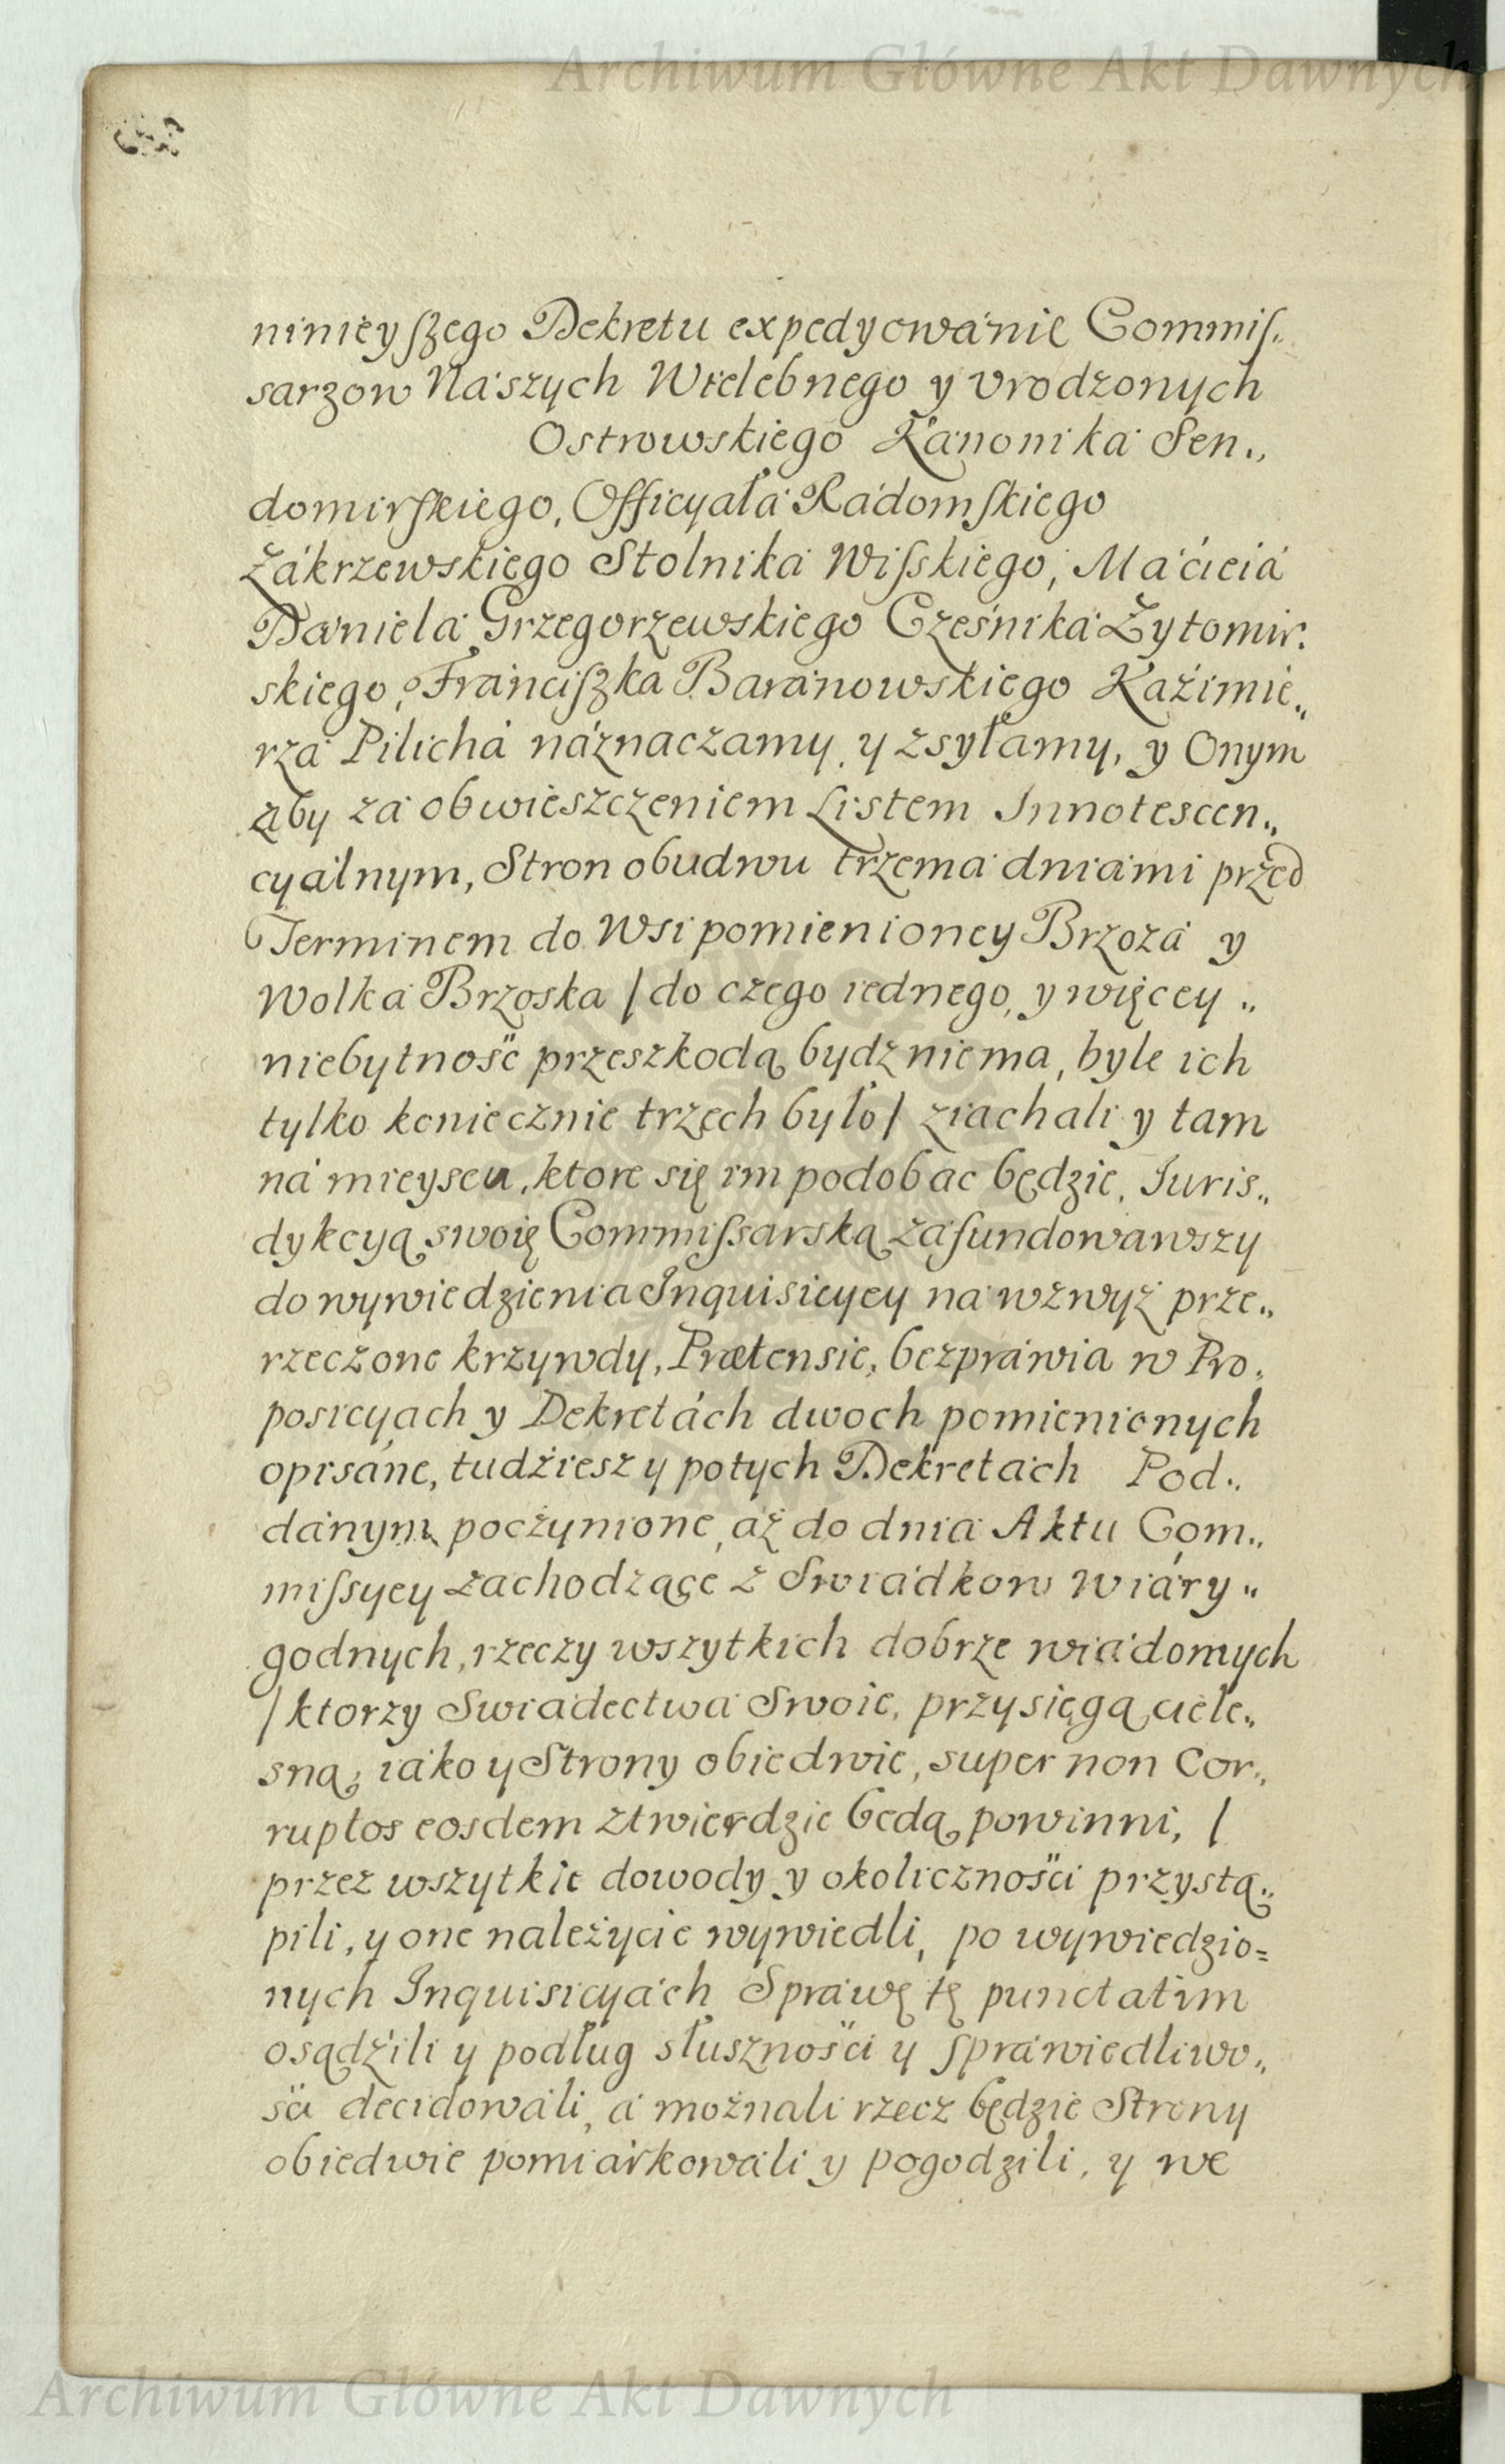 Archiwum Główne Akt Dawnych
ninieyszego Dekretu expedyowánie Commis„
sarzow Nászych Wielebnego y Vrodzonych
Ostrowskiego Kánoniká Sen„
domirskiego, Officyałá Rádomskiego
Zákrzewskiego Stolniká Wisskiego, Máćieiá
Dánielá Grzegorzewskiego Cześniká Żytomir„
skiego, Fránciszka Báránowskiego Káźimie„
rzá Pilichá náznaczamy y zsyłamy, y Onym
áby zá obwieszczeniem Listem Innotescen„
cyálnym, Stron obudwu trzemá dniámi przed
Terminem do Wsi pomienioney Brzozá y
Wolká Brzoska / do czego iednego, y więcey „
niebytność przeszkodą bydz niema, byle ich
tylko koniecznie trzech było / ziachali y tam
ná mieyscu, ktore się im podobác będzie, Iuris„
dykcyą swoię Commissarską záfundowawszy
do wywiedzienia Inquisicyey ná wzwyż prze„
rzeczone krzywdy, Prætensie, bezpráwia w Pro„
posicyach y Dekretách dwoch pomienionych
opisáne, tudźiesz y potych Dekretách Pod„
dánym poczynione, aż do dnia Aktu Com„
missyey zachodzące z Swiádkow wiáry „
godnych, rzeczy wszytkich dobrze wiádomych
/ ktorzy Swiadectwá Swoie, przysięgą ciele„
sną; iáko y Strony obiedwie, super non Cor„
ruptos eosdem ztwierdzic będą powinni, /
przez wszytkie dowody y okoliczności przystą„
pili, y one należycie wywiedli, po wywiedzio=
nych Inquisicyách Spráwę tę punctatim
osądźili y podług słuszności y spráwiedliwo„
ści decidowáli, á możnali rzecz będzie Strony
obiedwie pomiárkowáli y pogodzili, y we
Archiwum Główne Akt Dawnych